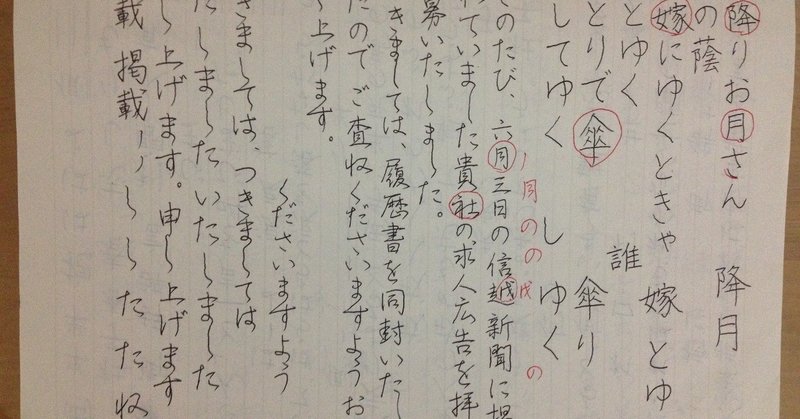 降りお月さん 降月
の蔭
嫁にゆくときゃ 嫁とゆ
とゆく 誰
とりで傘 傘り
してゆく し ゆく
月のの の
のたび、六月三日の信越新聞に掲
れていました貴社の求人広告を拝
募いたしました。
きましては、履歴書を同封いたし
たので ご査収くださいますようお
し上げます。
くださいますよう
きましては、つきましては
たしました いたしました
し上げます。申し上げます
載 掲載 ノノ しし たた 収